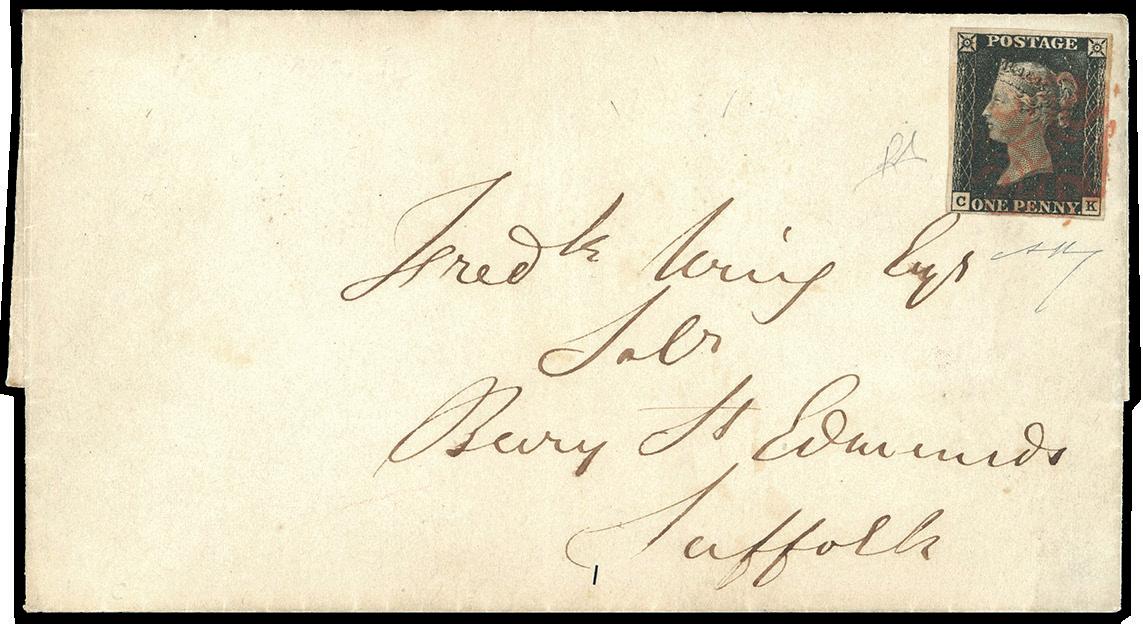 POSTAGE
C ONE PENNY. K
Fredk Wing Esqr
Solr
Bury St Edmunds
Suffolk